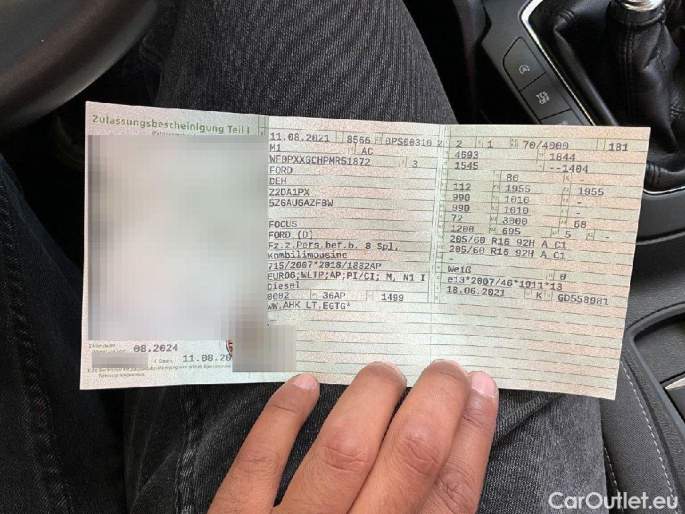 Zulassungsbescheinigung Teil I
11.08.2021 8566
M1 AC
3
FORD
DEH
Z2DA1PX
5Z6AUGAZFBW
FOCUS
FORD (D)
Fz.z.Pers.bef.b. 8 Spl.
Kombilimousine
715/2007*2018/1832AP
EURO6;WLTP;AP;PI/CI; M, N1 I
Diesel
0002 36AP 1499
08.2024
11.08.20
2 1 70/4000 181
1844
1545
80 -
112 1955 1955
990 1010 -
990 1010 -
72 3000 68
1200 695 5 -
205/60 R16 92H A C1
205/60 R16 92H A C1
-
Weiß 0
18.06.2021 K GD558981
CarOutlet.eu